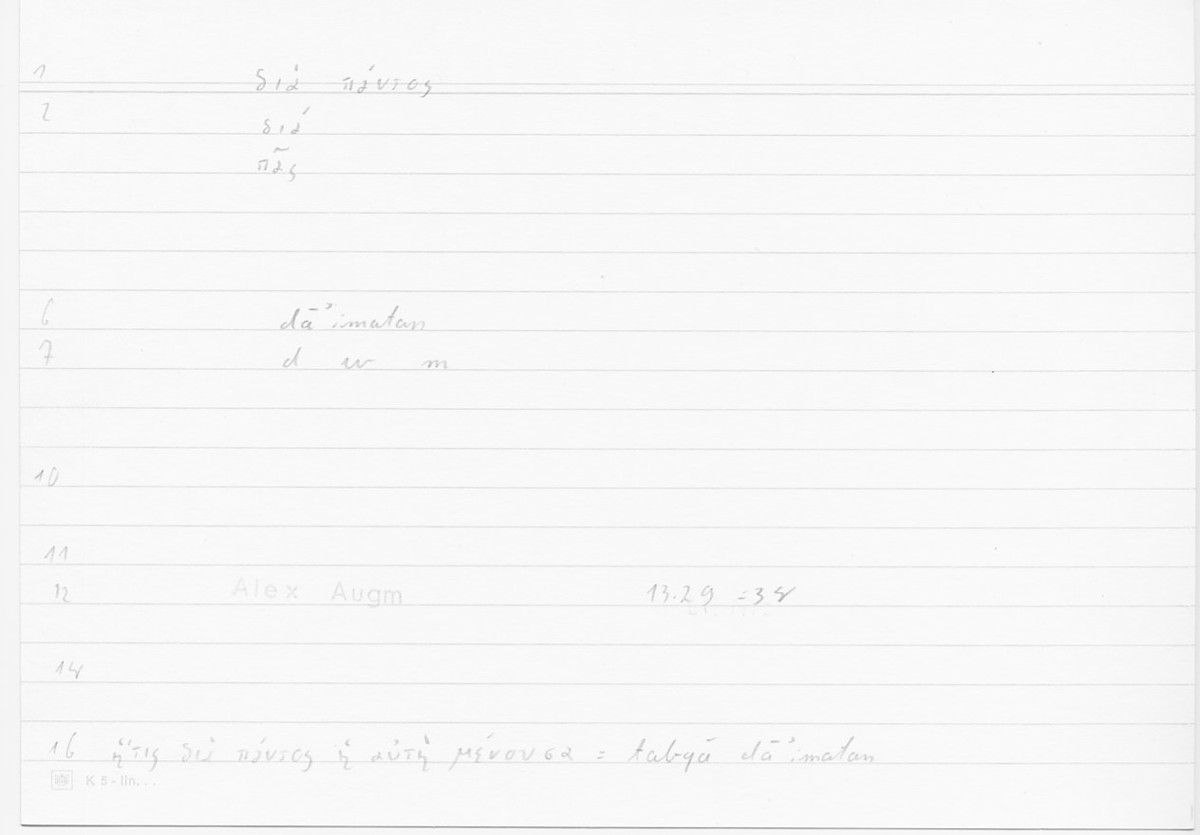 1 διὰ πάντος
2 διά
πᾶς
6 dāʾimatan
7 d w m
10
11
12 Alex Augm 13.29 =
14
16 ἥτις διὰ πάντος ἡ αὐτὴ μένουσα = tabqā dāʾimatan